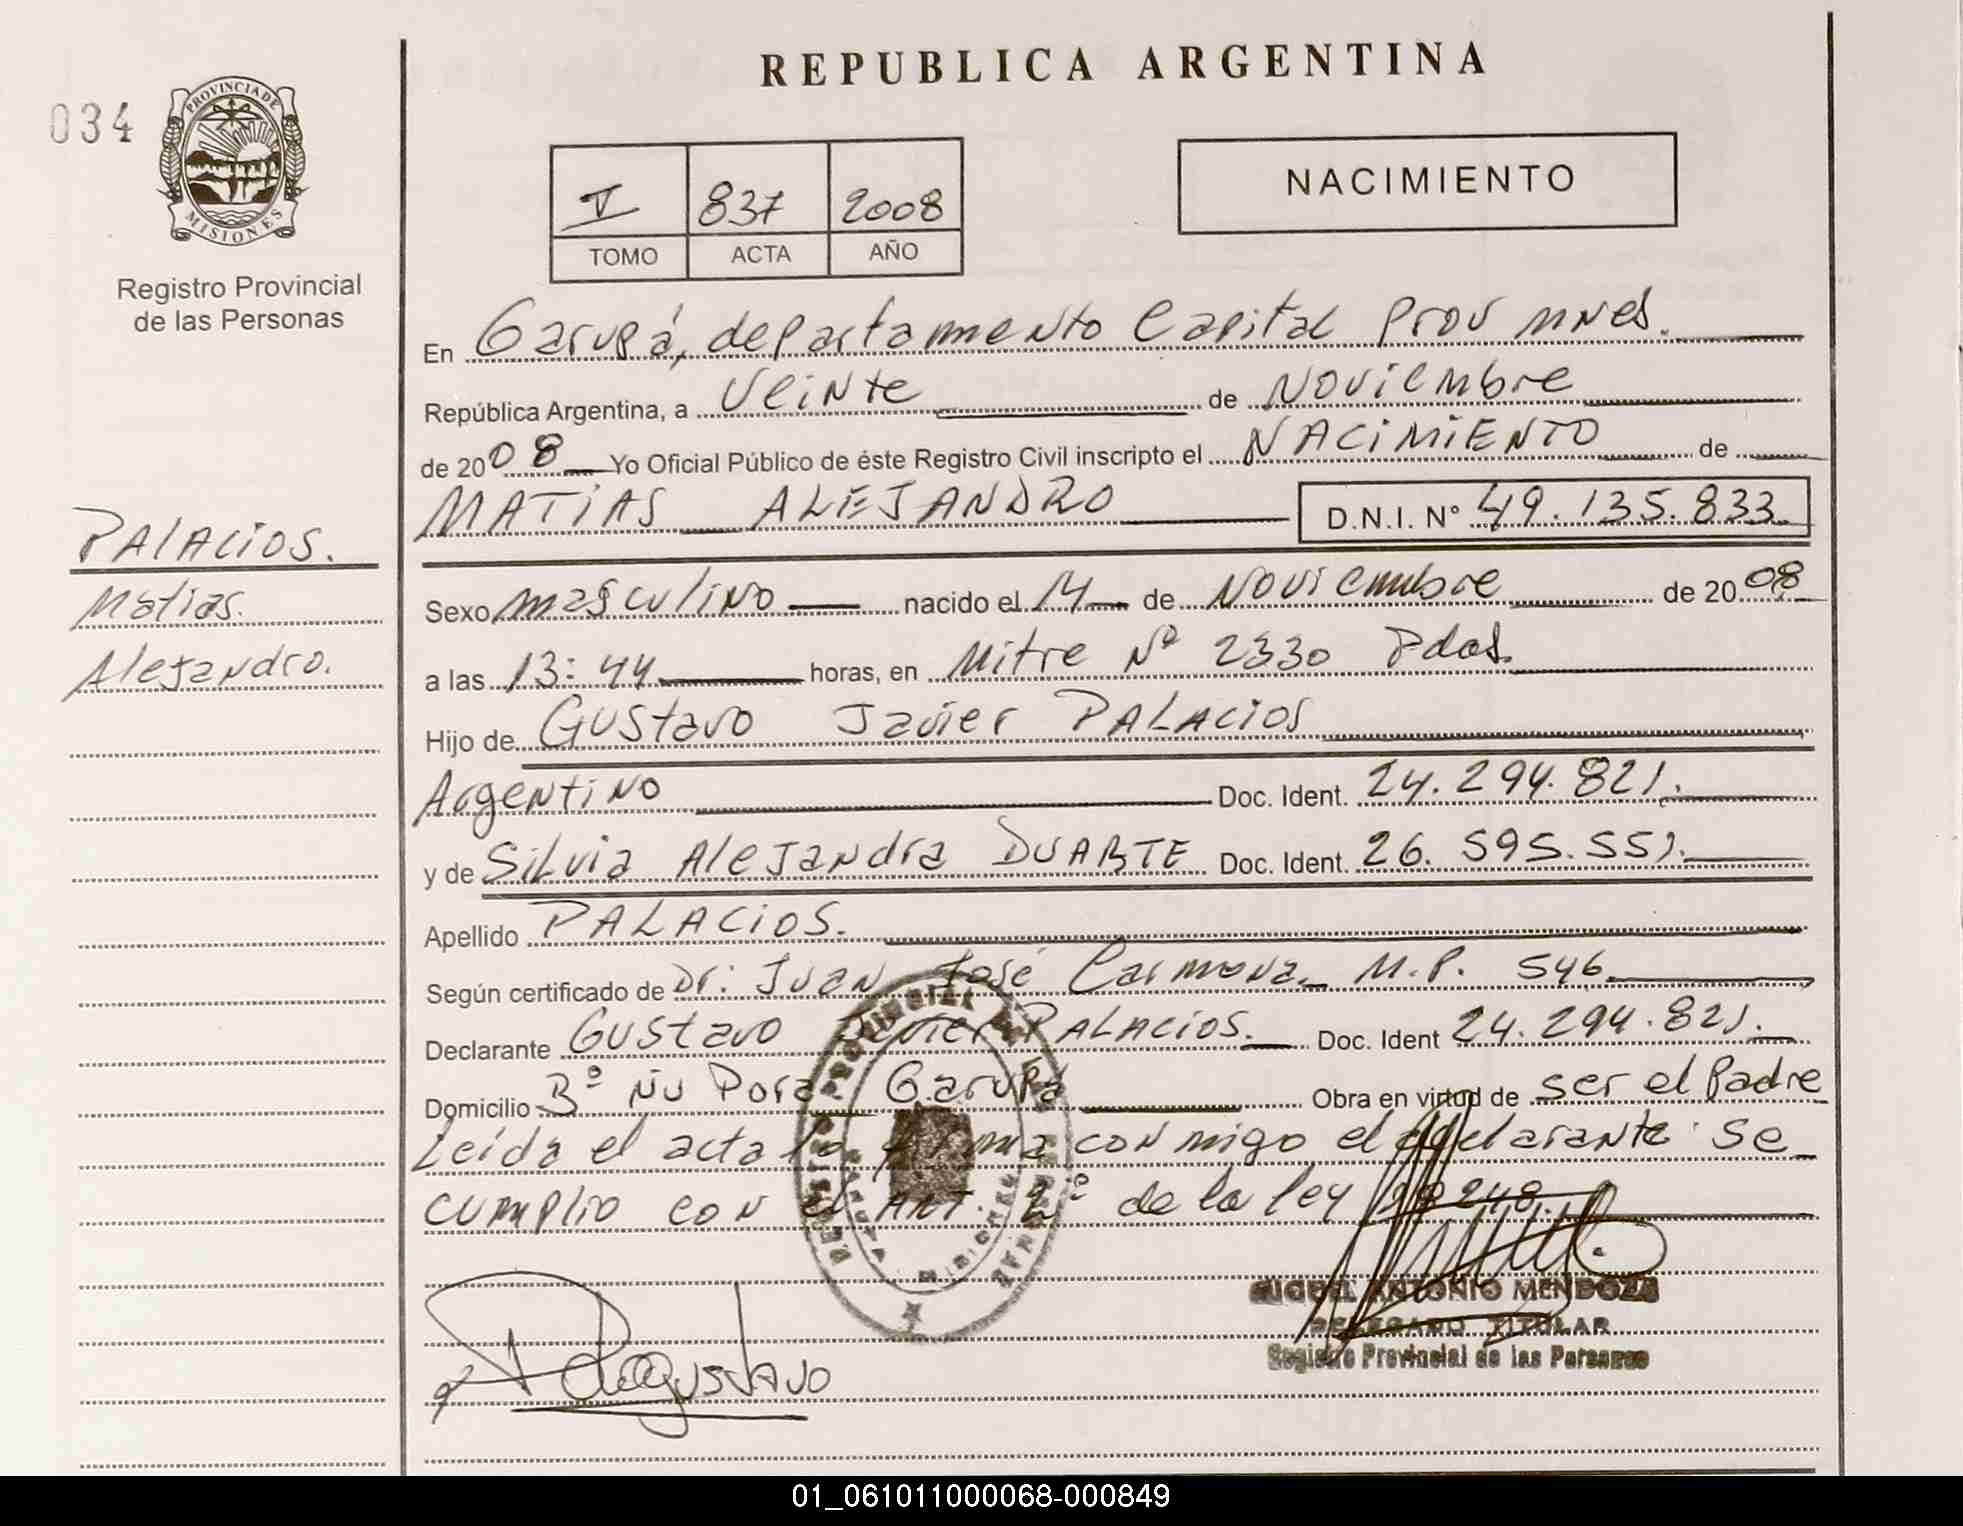 REPUBLICA ARGENTINA
034
PROVINCIA DE
MISIONES
Registro Provincial
de las Personas
I 837 2008
TOMO ACTA AÑO
NACIMIENTO
En Garupá, departamento Capital Prov Mnes.
República Argentina, a Veinte de Noviembre
de 2008 Yo Oficial Público de éste Registro Civil inscripto el NACIMIENTO de
MATIAS ALEJANDRO D.N.I. N° 49.135.833
PALACIOS.
Matias.
Alejandro.
Sexo masculino nacido el 14 de Noviembre de 2008
a las 13:44 horas, en Mitre Nº 2330 Pdas.
Hijo de Gustavo Javier PALACIOS
Argentino Doc. Ident. 24.294.821.
y de Silvia Alejandra DUARTE Doc. Ident. 26.595.551.
Apellido PALACIOS.
Según certificado de Dr: Juan José Carmona M.P. 546.
Declarante Gustavo Javier PALACIOS. Doc. Ident 24.294.821.
Domicilio Bº Ñu Pora Garupá Obra en virtud de ser el Padre
Leída el acta la firma conmigo el declarante. Se
cumplio con el ART. 2º de la ley 18248.
MIGUEL ANTONIO MENDOZA
DELEGADO TITULAR
Registro Provincial de las Personas
Gustavo
01_061011000068-000849